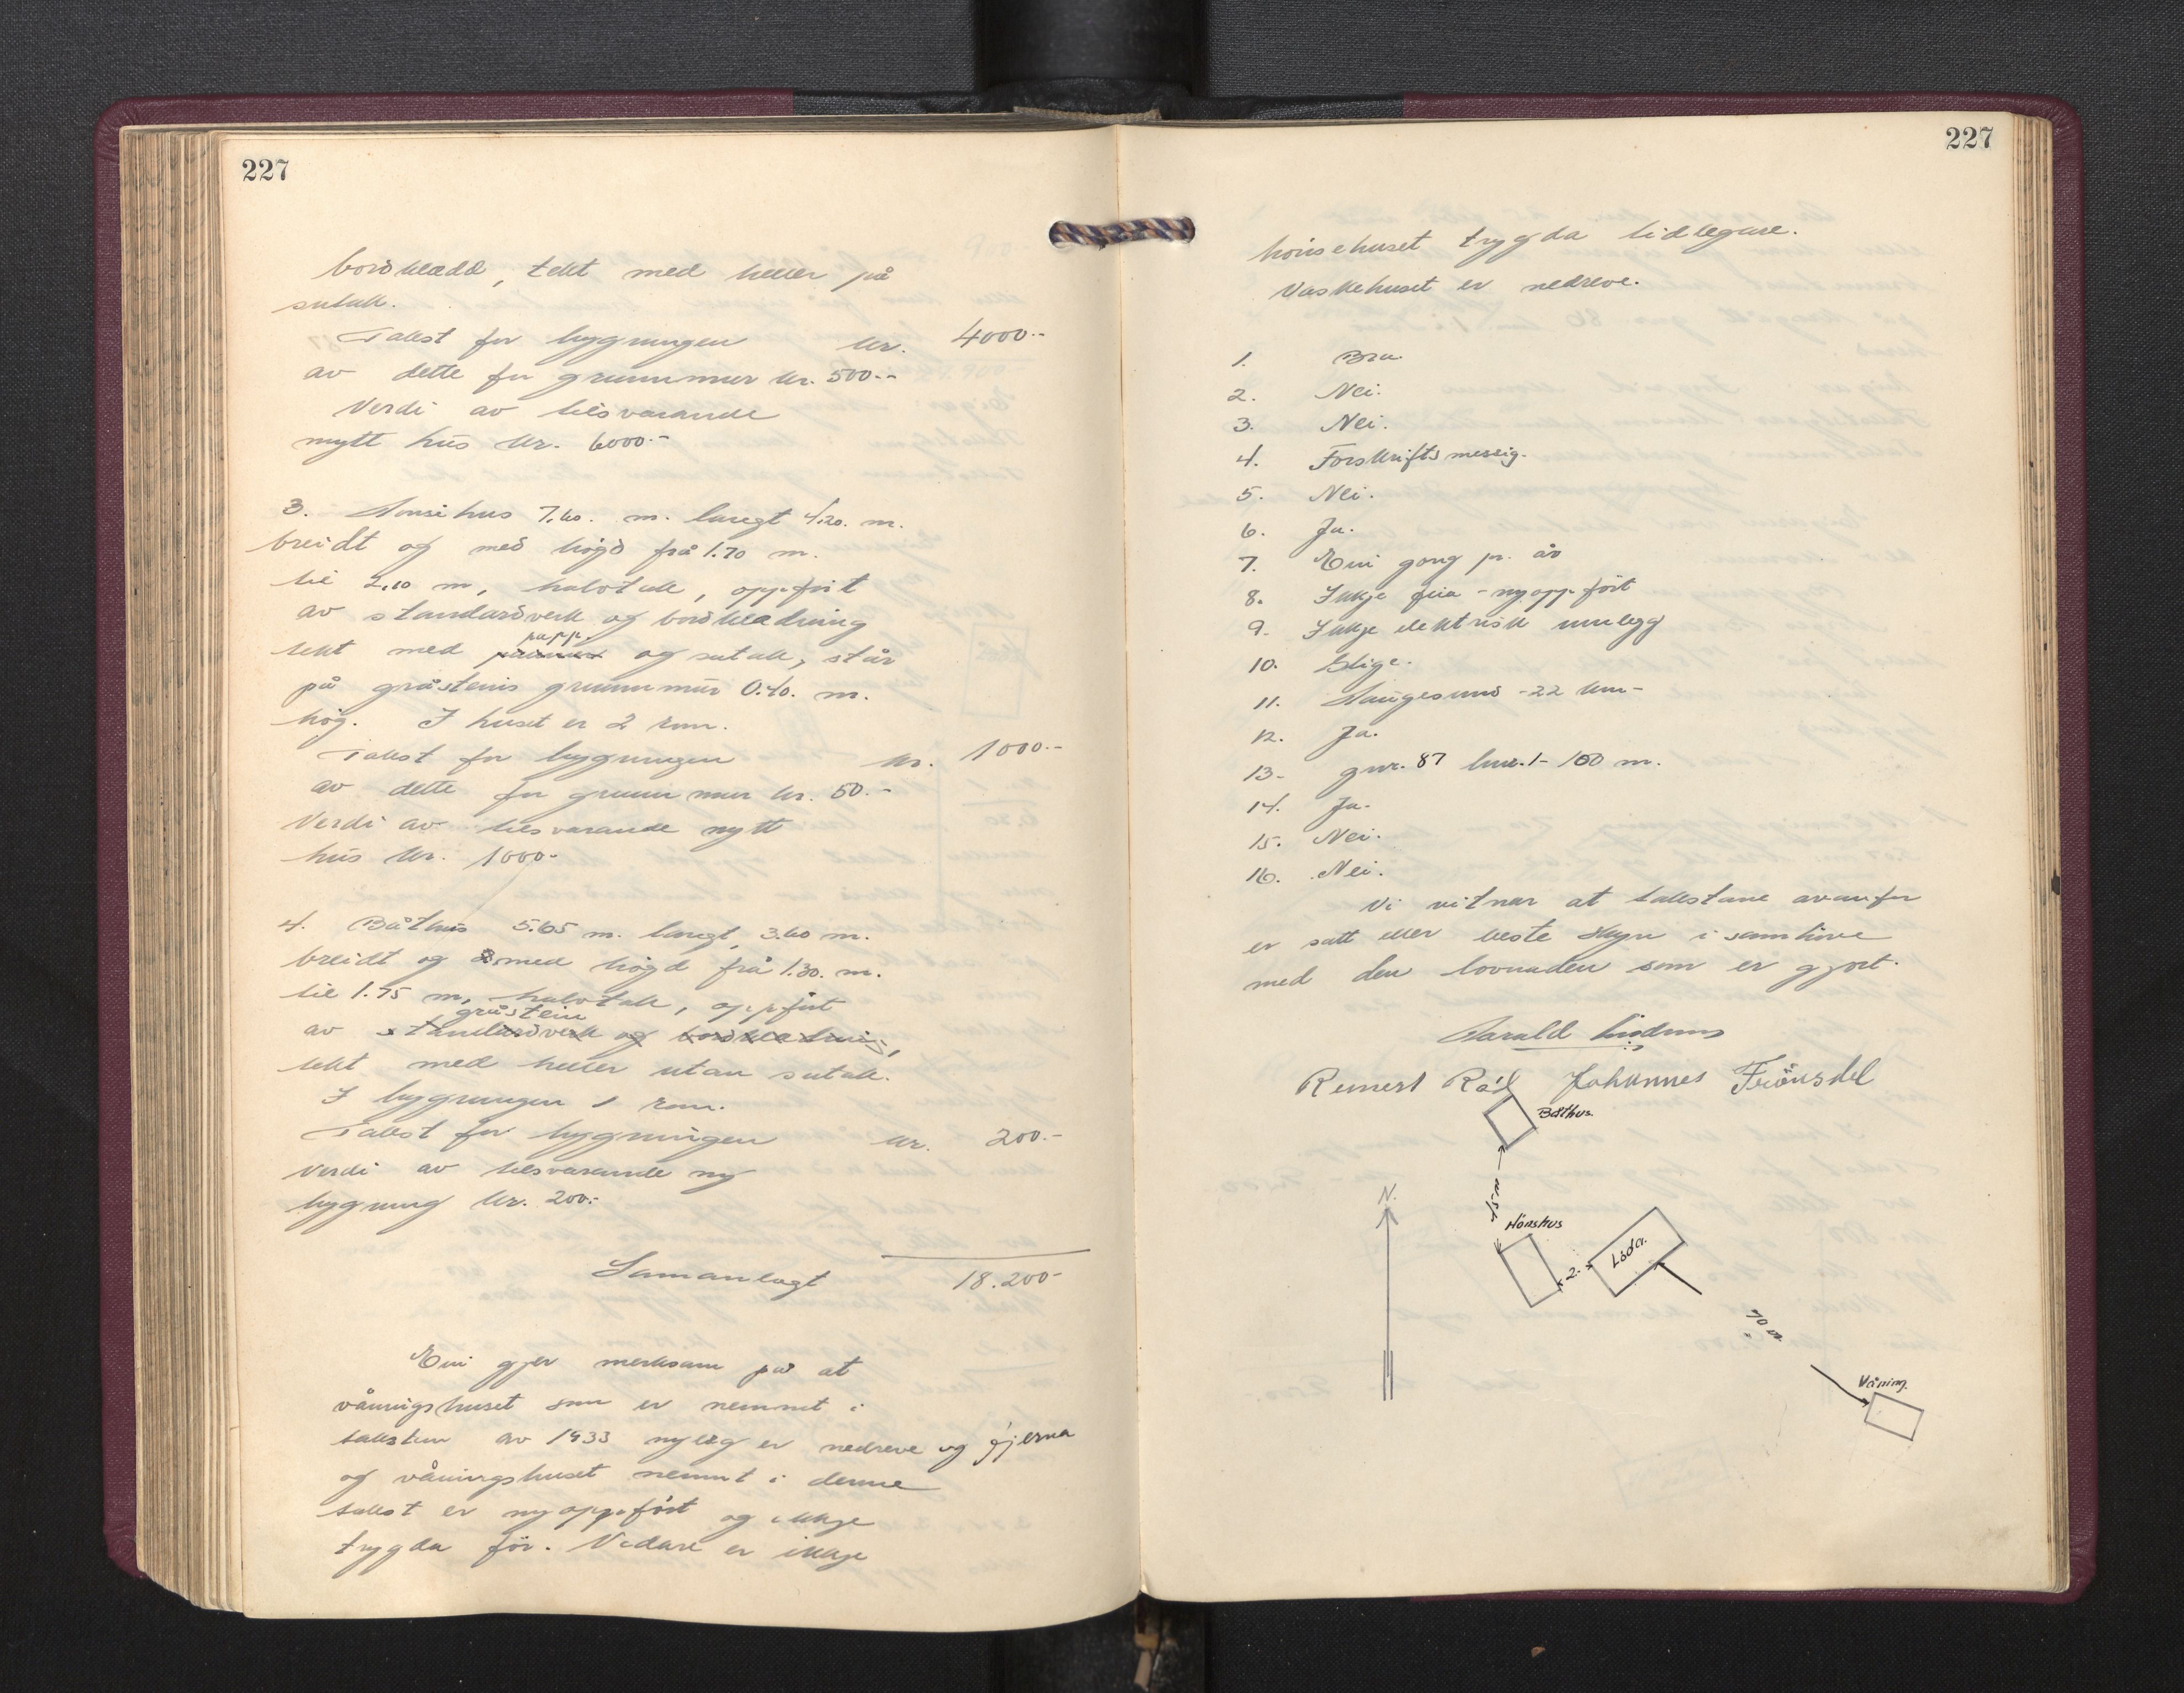 227
bordkledd, tekt med heller på
sutak.
Takst for bygningen kr. 4000.-
av dette for grunnmur kr. 500.-
Verdi av tilsvarande
nytt hus kr. 6000.-
3. Hønsehus 7.60. m. langt 4.20. m.
breidt og med høgd frå 1.70 m.
til 2.10 m, halvtak, oppført
av standardverk og bordkledning
tekt med papp. og sutak, står
på gråsteins grunnmur 0.40. m.
høg. I huset er 2 rom.
Takst for bygningen kr. 1000.-
av dette for grunnmur kr. 50.-
Verdi av tilsvarande nytt
hus kr. 1000.-
4. Båthus 5.65 m. langt, 3.60 m.
breidt og med høgd frå 1.30. m.
til 1.75 m, halvtak, oppført
gråstein
av standardverk og bordkledning,
tekt med heller utan sutak.
I bygningen 1 rom.
Takst for bygningen kr. 200.-
Verdi av tilsvarande ny
bygning kr. 200.-
Samanlagt 18.200-
Ein gjer merksam på at
våningshuset som er nemnt i
taksten av 1933 nyleg er nedreve og fjerna
og våningshuset nemnt i denne
takst er nyoppført og ikkje
trygda før. Vidare er ikkje
227
hønsehuset trygda tidlegare.
Vaskehuset er nedreve.
1. Bra
2. Nei.
3. Nei.
4. Forskriftsmessig.
5. Nei.
6. Ja.
7. Ein gong pr. år
8. Ikkje feia - nyoppført
9. Ikkje elektrisk innlegg
10. Elige.
11. Haugesund - 22 km-
12. Ja.
13- gnr. 87 bnr. 1- 100 m.
14. Ja.
15. Nei.
16. Nei.
Vi vitnar at takstane ovanfor
er sett etter beste skyn i samhøve
med den lovnaden som er gjort.
Harald Lindnes
Reinert Råd Johannes Frönsdel
Båthus
15 m
N.
Hönshus
2.
Löda.
70 m
Våning.